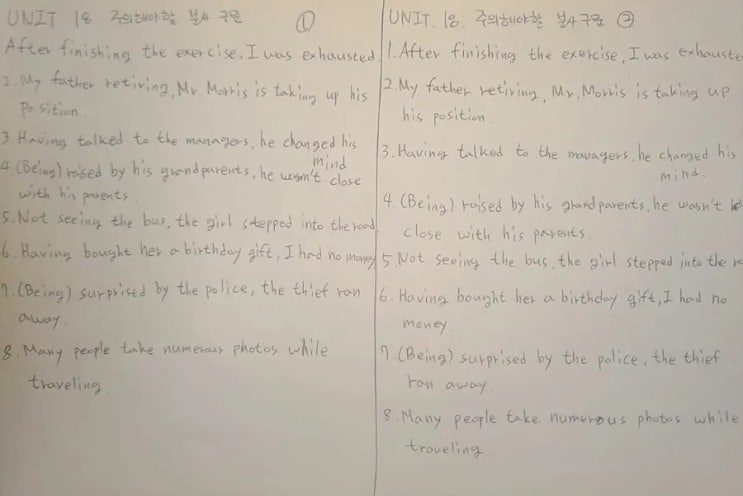 UNIT. 18. 주의해야할 분사 구문 ①
After finishing the exercise, I was exhausted.
2. My father retiring, Mr. Morris is taking up his
position.
3 Having talked to the managers, he changed his
mind.
4. (Being) raised by his grandparents, he wasn't close
with his parents.
5. Not seeing the bus, the girl stepped into the road
6. Having bought her a birthday gift, I had no money
7. (Being) surprised by the police, the thief ran
away.
8. Many people take numerous photos while
traveling.
UNIT. 18. 주의해야할 분사 구문 ②
1. After finishing the exercise, I was exhauste
2. My father retiring, Mr. Morris is taking up
his position.
3. Having talked to the managers, he changed his
mind.
4. (Being) raised by his grandparents, he wasn't
close with his parents.
5. Not seeing the bus, the girl stepped into the ro
6. Having bought her a birthday gift, I had no
money.
7. (Being) surprised by the police, the thief
ran away.
8. Many people take numerous photos while
traveling.